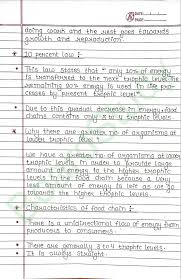 doing work and the rest goes towards
growth and reproduction.
10 percent law :-
This law states that " only 10% of energy
is transferred to the next trophic level the
remaining 90% energy is used in life pro
cesses by present trophic level"
Due to this gradual decrease in energy, food
chains contains only 3 to 4 trophic levels
Why there are greater no of organisms at
lower trophic level :-
We have a greater no of organisms at lower
trophic levels in order to provide large
amount of energy to the higher trophic
levels in the food chain because a very
less amount of energy is left as we go
towards the higher trophic levels.
Characteristics of food chain :-
There is a unidirectional flow of energy from
producers to consumers.
There are generally 3 to 4 trophic levels.
It is always straight.